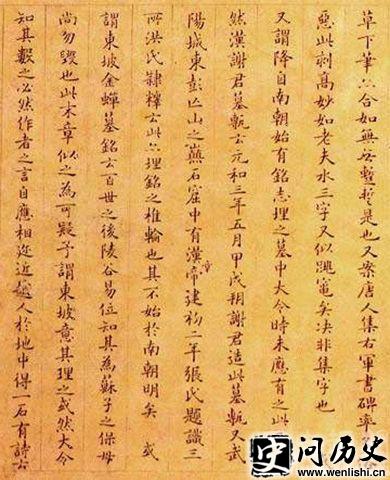 草下筆亦合如無暫是也又案唐人集右軍書碑率
惡此刻高妙如老夫水三字又似矣決非集字也
又謂降自南朝始有銘志埋之墓中大令時未應有之此
然漢謝君墓甎云元和三年五月甲戌朔謝君造此墓甎又武
陽城東彭亡山之巔石窟中有漢章帝建初二年張氏題識三
所洪氏隸釋云此亦埋銘之椎輪也其不始於南朝明矣 或
謂東坡金蟬墓銘云百世之後陵谷易位知其為蘇子之保母
尚勿毀也此末章似之為可疑予謂東坡意其理之或然大令
知其數之必然作者之言自應相近越人於地中得一石有詩云
史 问历史
www.wenlishi.cn